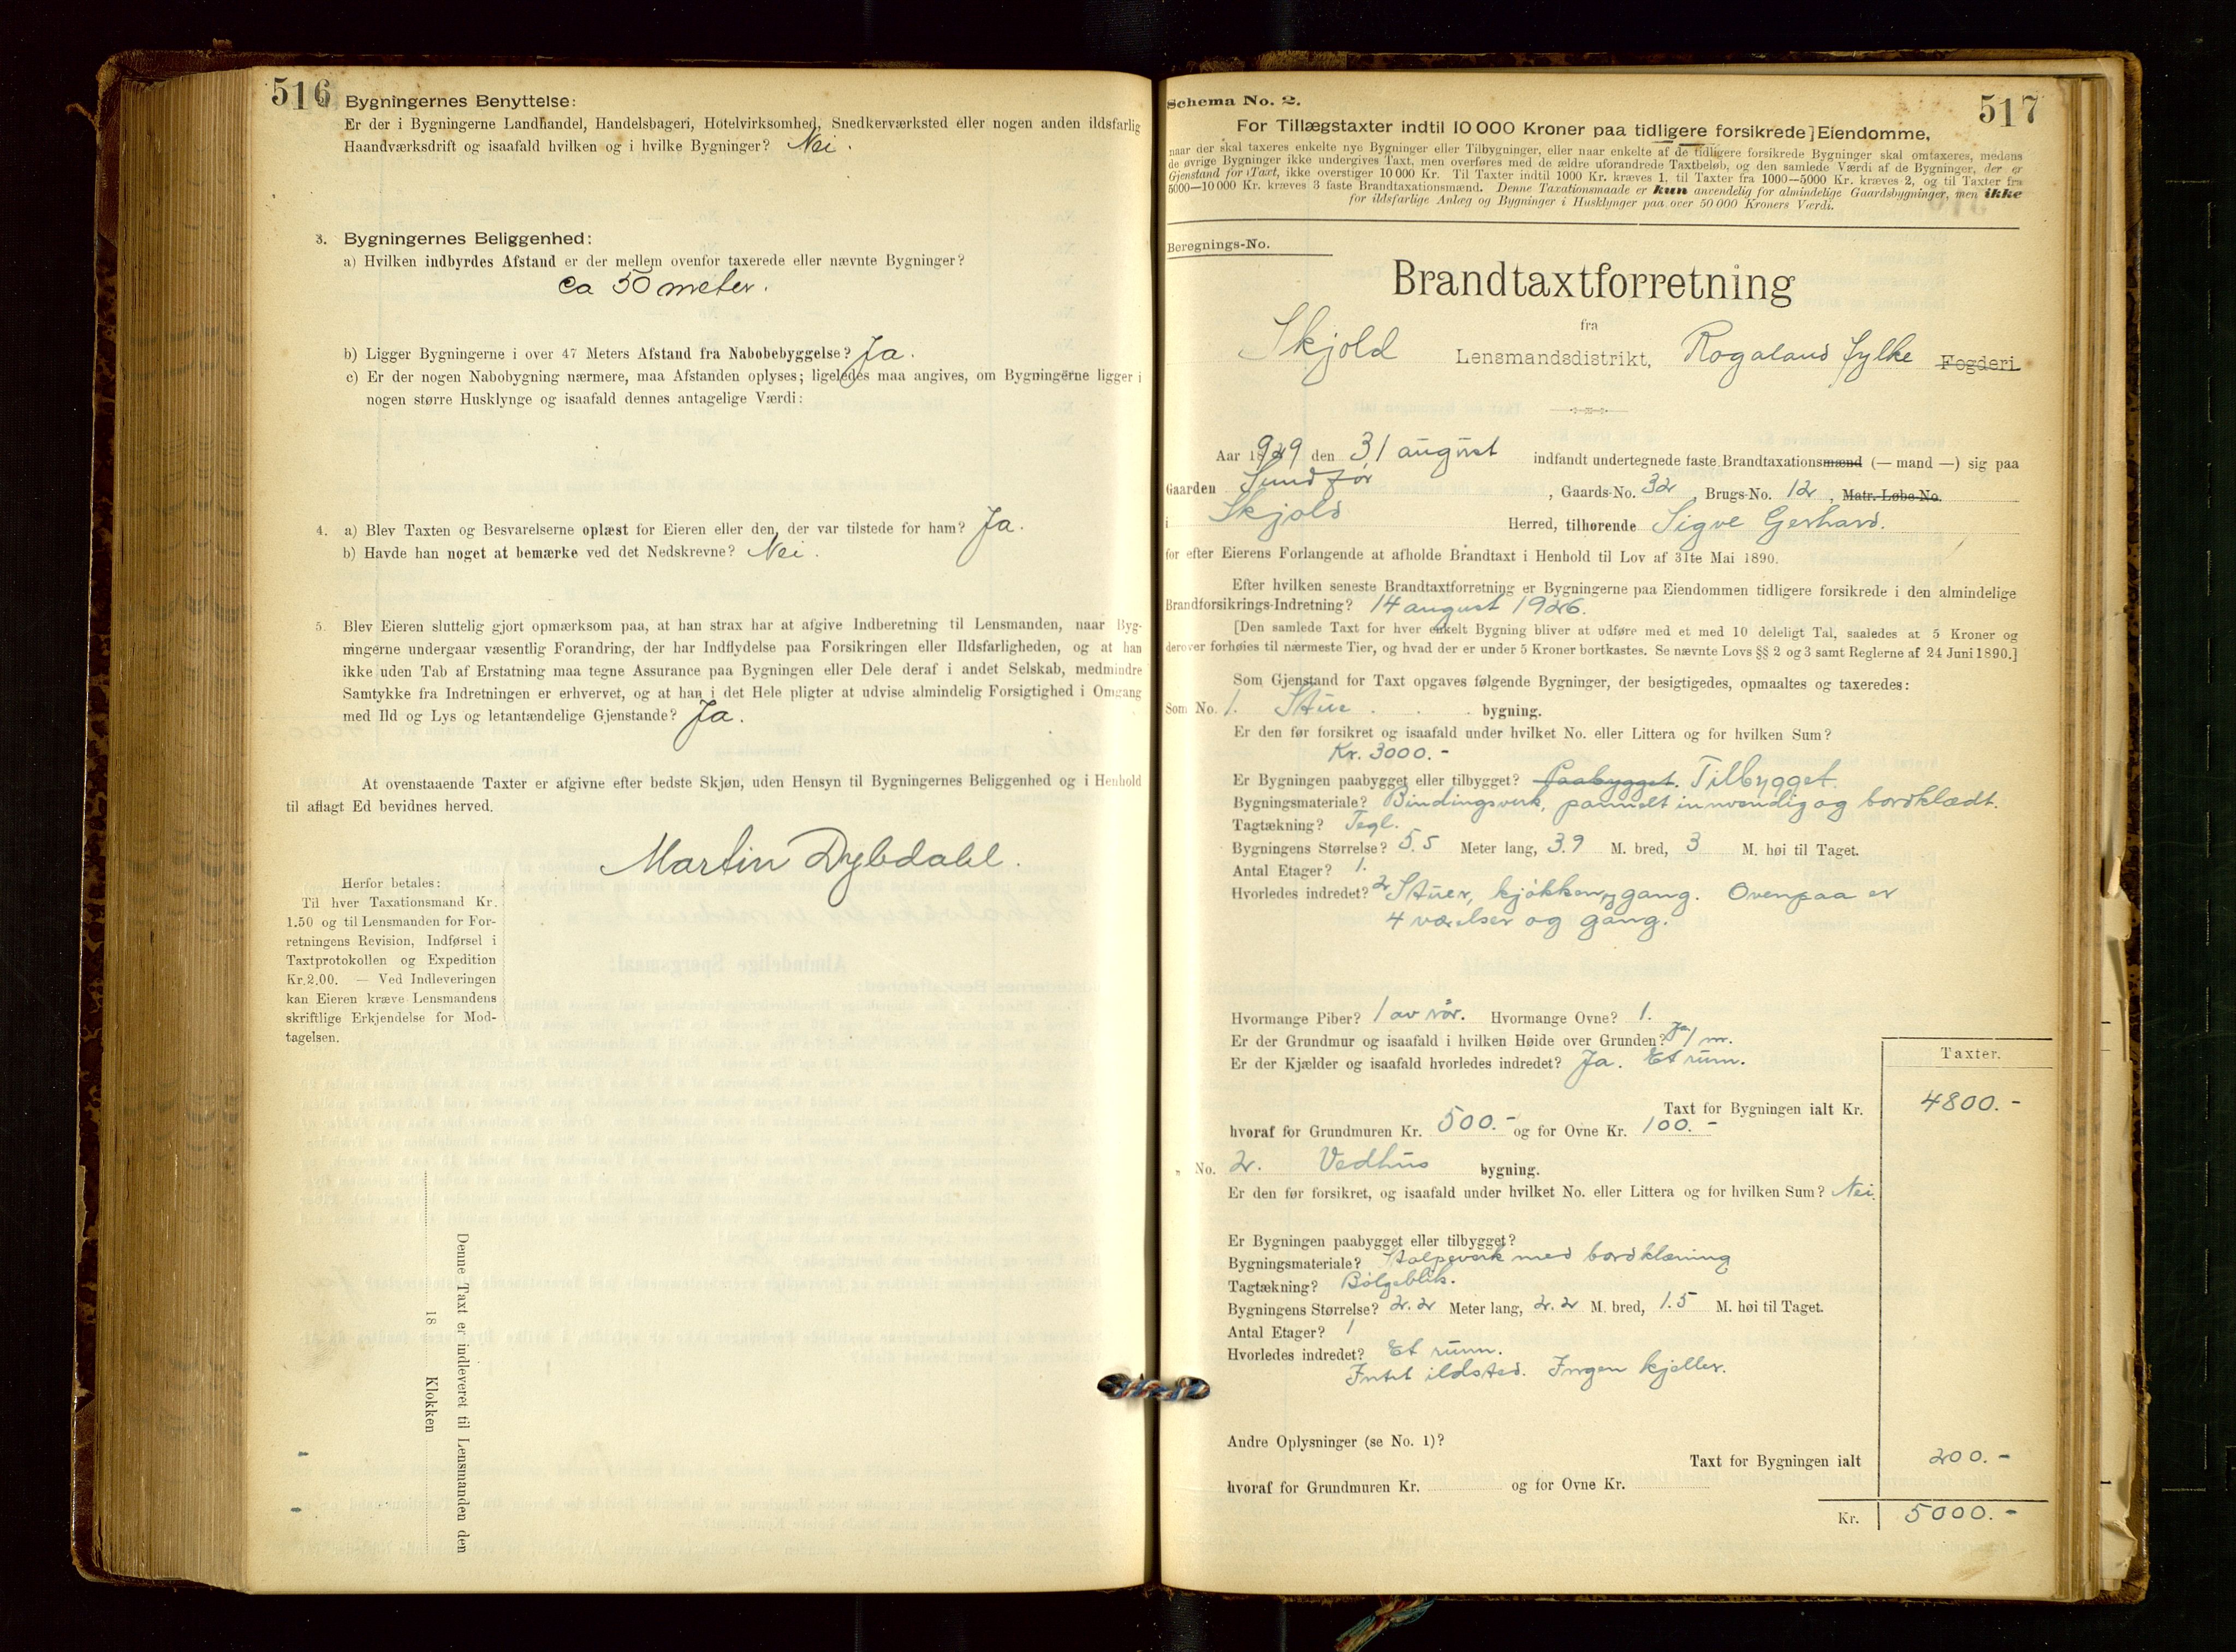 516
Bygningernes Benyttelse:
Er der i Bygningerne Landhandel, Handelsbageri, Hotelvirksomhed, Snedkerværksted eller nogen anden ildsfarlig
Haandværksdrift og isaafald hvilken og i hvilke Bygninger? Nei.
3. Bygningernes Beliggenhed:
a) Hvilken indbyrdes Afstand er der mellem ovenfor taxerede eller nævnte Bygninger?
ca 50 meter.
b) Ligger Bygningerne i over 47 Meters Afstand fra Nabobebyggelse? Ja.
c) Er der nogen Nabobygning nærmere, maa Afstanden oplyses; ligeledes maa angives, om Bygningerne ligger i
nogen større Husklynge og isaafald dennes antagelige Værdi:
4. a) Blev Taxten og Besvarelserne oplæst for Eieren eller den, der var tilstede for ham? Ja.
b) Havde han noget at bemærke ved det Nedskrevne? Nei.
5. Blev Eieren sluttelig gjort opmærksom paa, at han strax har at afgive Indberetning til Lensmanden, naar Byg-
ningerne undergaar væsentlig Forandring, der har Indflydelse paa Forsikringen eller Ildsfarligheden, og at han
ikke uden Tab af Erstatning maa tegne Assurance paa Bygningen eller Dele deraf i andet Selskab, medmindre
Samtykke fra Indretningen er erhvervet, og at han i det Hele pligter at udvise almindelig Forsigtighed i Omgang
med Ild og Lys og letantændelige Gjenstande? Ja.
At ovenstaaende Taxter er afgivne efter bedste Skjøn, uden Hensyn til Bygningernes Beliggenhed og i Henhold
til aflagt Ed bevidnes herved.
Martin Dybdahl.
Herfor betales:
Til hver Taxationsmand Kr.
1.50 og til Lensmanden for For-
retningens Revision, Indførsel i
Taxtprotokollen og Expedition
Kr. 2.00. — Ved Indleveringen
kan Eieren kræve Lensmandens
skriftlige Erkjendelse for Mod-
tagelsen.
Denne Taxt er indleveret til Lensmanden den
18 Klokken
517
Schema No. 2.
For Tillægstaxter indtil 10 000 Kroner paa tidligere forsikrede] Eiendomme,
naar der skal taxeres enkelte nye Bygninger eller Tilbygninger, eller naar enkelte af de tidligere forsikrede Bygninger skal omtaxeres, medens
de øvrige Bygninger ikke undergives Taxt, men overføres med de ældre uforandrede Taxtbeløb, og den samlede Værdi af de Bygninger, der er
Gjenstand for Taxt, ikke overstiger 10 000 Kr. Til Taxter indtil 1000 Kr. kræves 1, til Taxter fra 1000—5000 Kr. kræves 2, og til Taxter fra
5000—10 000 Kr. kræves 3 faste Brandtaxationsmænd. Denne Taxationsmaade er kun anvendelig for almindelige Gaardsbygninger, men ikke
for ildsfarlige Anlæg og Bygninger i Husklynger paa over 50 000 Kroners Værdi.
Beregnings-No.
Brandtaxtforretning
fra
Skjold Lensmandsdistrikt, Rogaland fylke Fogderi
Aar 1929 den 31 august indfandt undertegnede faste Brandtaxationsmænd (— mand —) sig paa
Gaarden Sundfør, Gaards-No. 32, Brugs-No. 12, Matr. Løbe-No.
i Skjold Herred, tilhørende Sigve Gerhard.
for efter Eierens Forlangende at afholde Brandtaxt i Henhold til Lov af 31te Mai 1890.
Efter hvilken seneste Brandtaxtforretning er Bygningerne paa Eiendommen tidligere forsikrede i den almindelige
Brandforsikrings-Indretning? 14 august 1926.
[Den samlede Taxt for hver enkelt Bygning bliver at udføre med et med 10 deleligt Tal, saaledes at 5 Kroner og
derover forhøies til nærmeste Tier, og hvad der er under 5 Kroner bortkastes. Se nævnte Lovs §§ 2 og 3 samt Reglerne af 24 Juni 1890.]
Som Gjenstand for Taxt opgaves følgende Bygninger, der besigtigedes, opmaaltes og taxeredes:
Som No. 1. Stue bygning.
Er den før forsikret og isaafald under hvilket No. eller Littera og for hvilken Sum?
Kr. 3000.-
Er Bygningen paabygget eller tilbygget? Paabygget. Tilbygget.
Bygningsmateriale? Bindingsverk, pannelt innvendig og bordklædt.
Tagtækning? Tegl.
Bygningens Størrelse? 5.5 Meter lang, 3.9 M. bred, 3 M. høi til Taget.
Antal Etager? 1.
Hvorledes indredet? 2 Stuer, kjøkken, gang. Ovenpaa er
4 værelser og gang.
Hvormange Piber? 1 av rør. Hvormange Ovne? 1.
Er der Grundmur og isaafald i hvilken Høide over Grunden? Ja, 1 m.
Er der Kjælder og isaafald hvorledes indredet? Ja. Et rum.
Taxter.
Taxt for Bygningen ialt Kr. 4800.-
hvoraf for Grundmuren Kr. 500.- og for Ovne Kr. 100.-
" No. 2. Vedhus bygning.
Er den før forsikret, og isaafald under hvilket No. eller Littera og for hvilken Sum? Nei.
Er Bygningen paabygget eller tilbygget?
Bygningsmateriale? Stolpeverk med bordklæning
Tagtækning? Bølgeblik.
Bygningens Størrelse? 2.2 Meter lang, 2.2 M. bred, 1.5 M. høi til Taget.
Antal Etager? 1
Hvorledes indredet? Et rum.
Intet ildsted. Ingen kjeller.
Andre Oplysninger (se No. 1)?
Taxt for Bygningen ialt 200.-
hvoraf for Grundmuren Kr. og for Ovne Kr.
Kr. 5000.-